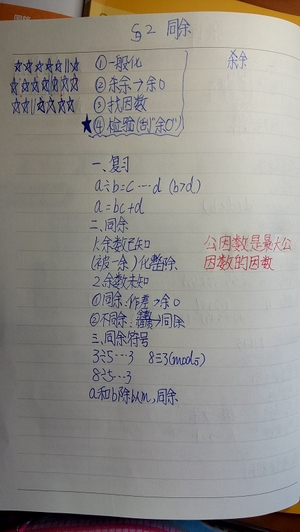 §2 同余
☆☆☆☆☆||☆ ①一般化
☆☆☆☆☆☆ ②杀余→余0 杀余
☆☆||☆☆☆☆ ③找因数
★④检验(刮"余0")
一、复习
a÷b=c…d (b>d)
a=bc+d
二、同余
1.余数已知 公因数是最大公
(被一余)化整除 因数的因数
2.余数未知
①同余:作差→余0
②不同余: →同余
三、同余符号
3÷5…3 8≡3(mod5)
8÷5…3
a和b除以m,同余